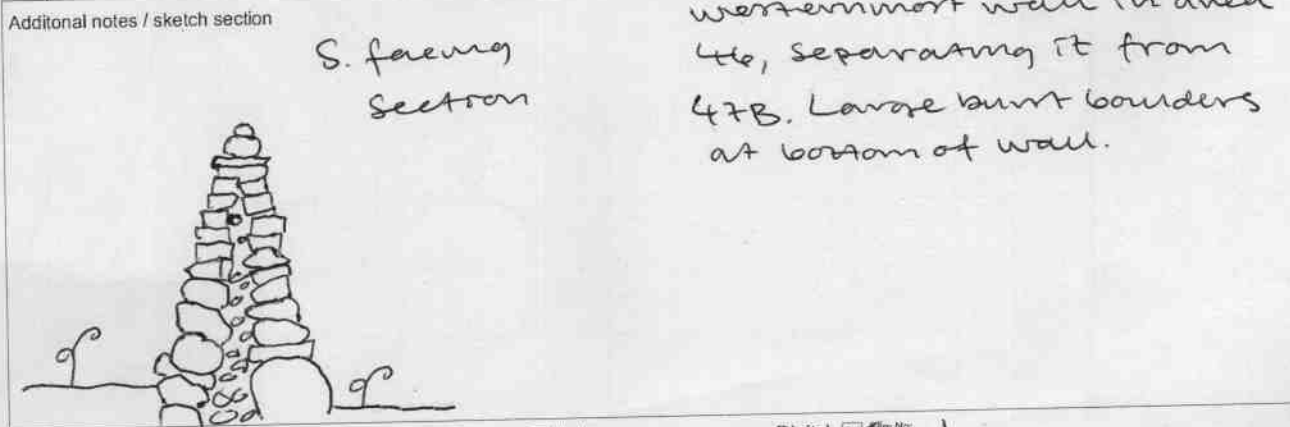 Additonal notes / sketch section
S. facing
section
westernmost wall in area
46, separating it from
47B. Large burnt boulders
at bottom of wall.